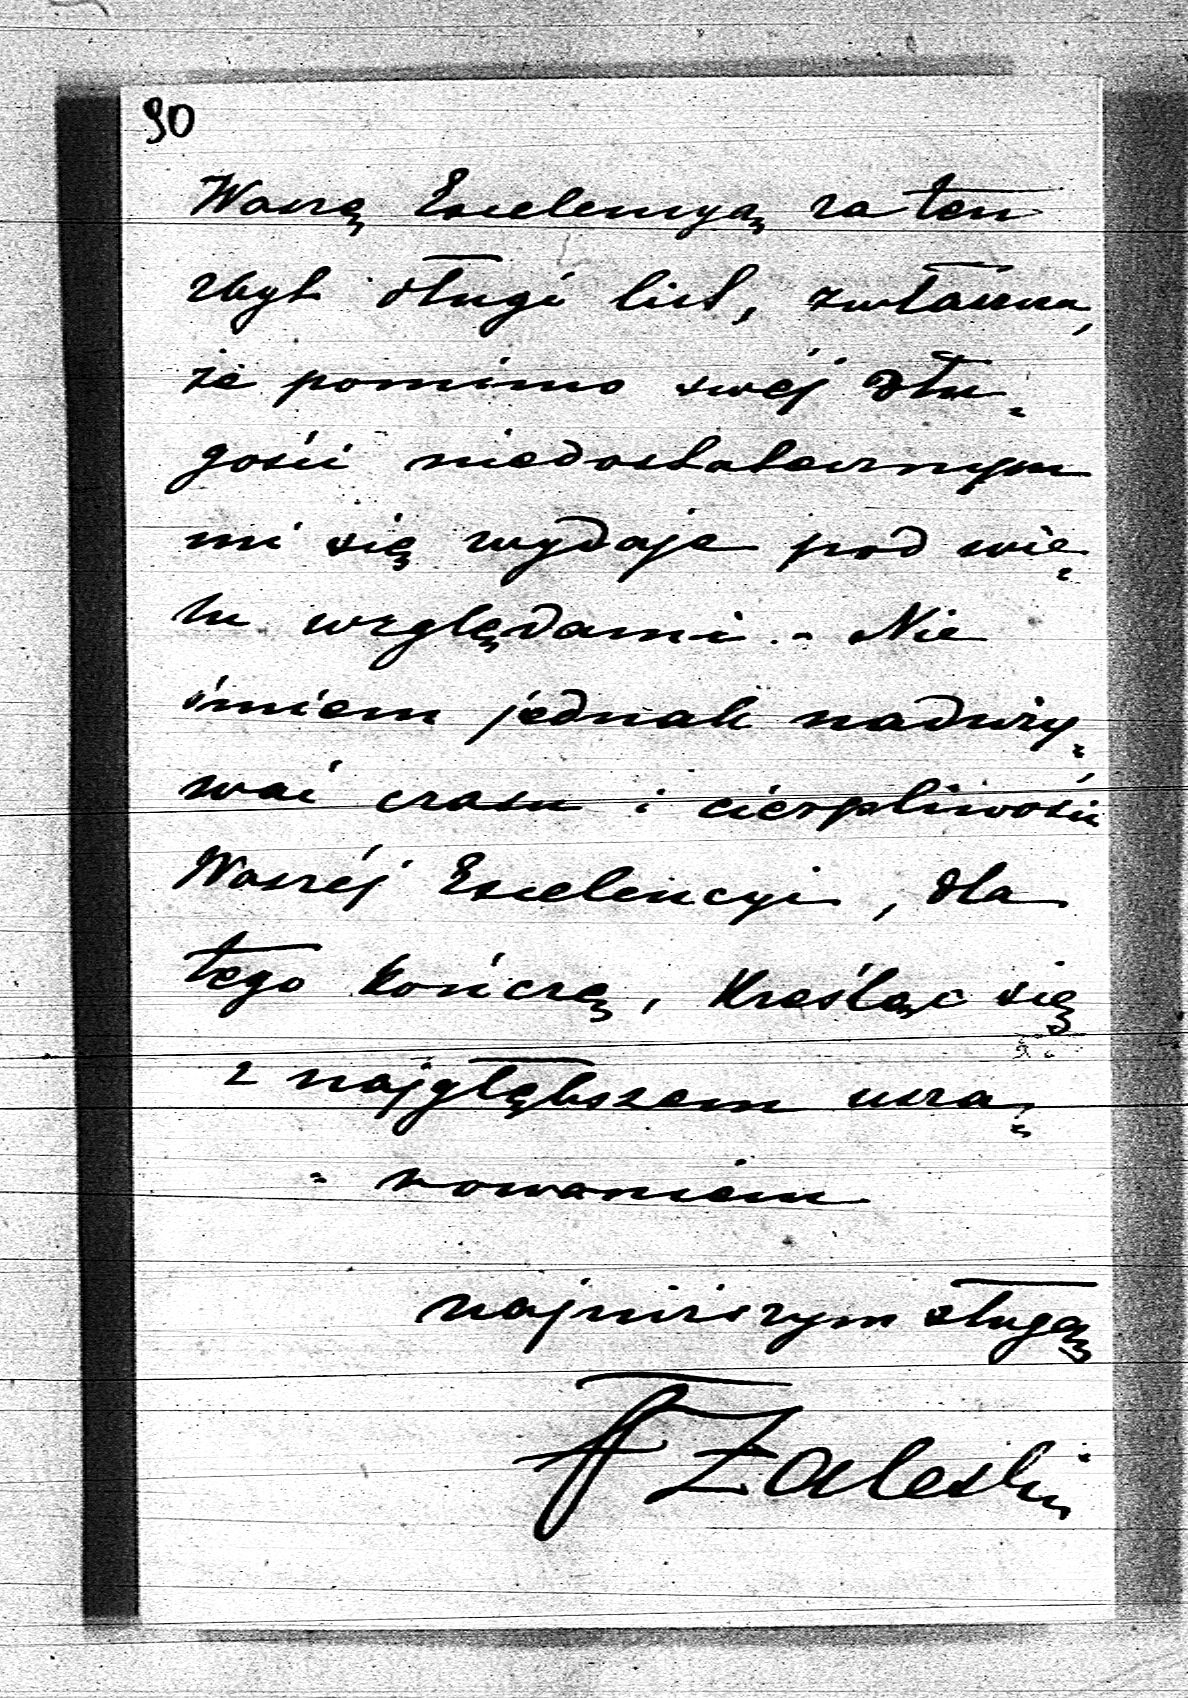 90
Waszą Excelencyą za ten
zbyt długi list, zwłaszcza,
że pomimo swéj dłu-
gości niedostatecznym
mi się wydaje pod wie-
lu względami. - Nie
śmiem jednak naduży-
wać czasu i cierpliwości
Waszéj Excelencyi, dla
tego kończę, kreśląc się
z najgłębszem usza-
- nowaniem
najniższym sługą
F Zaleski